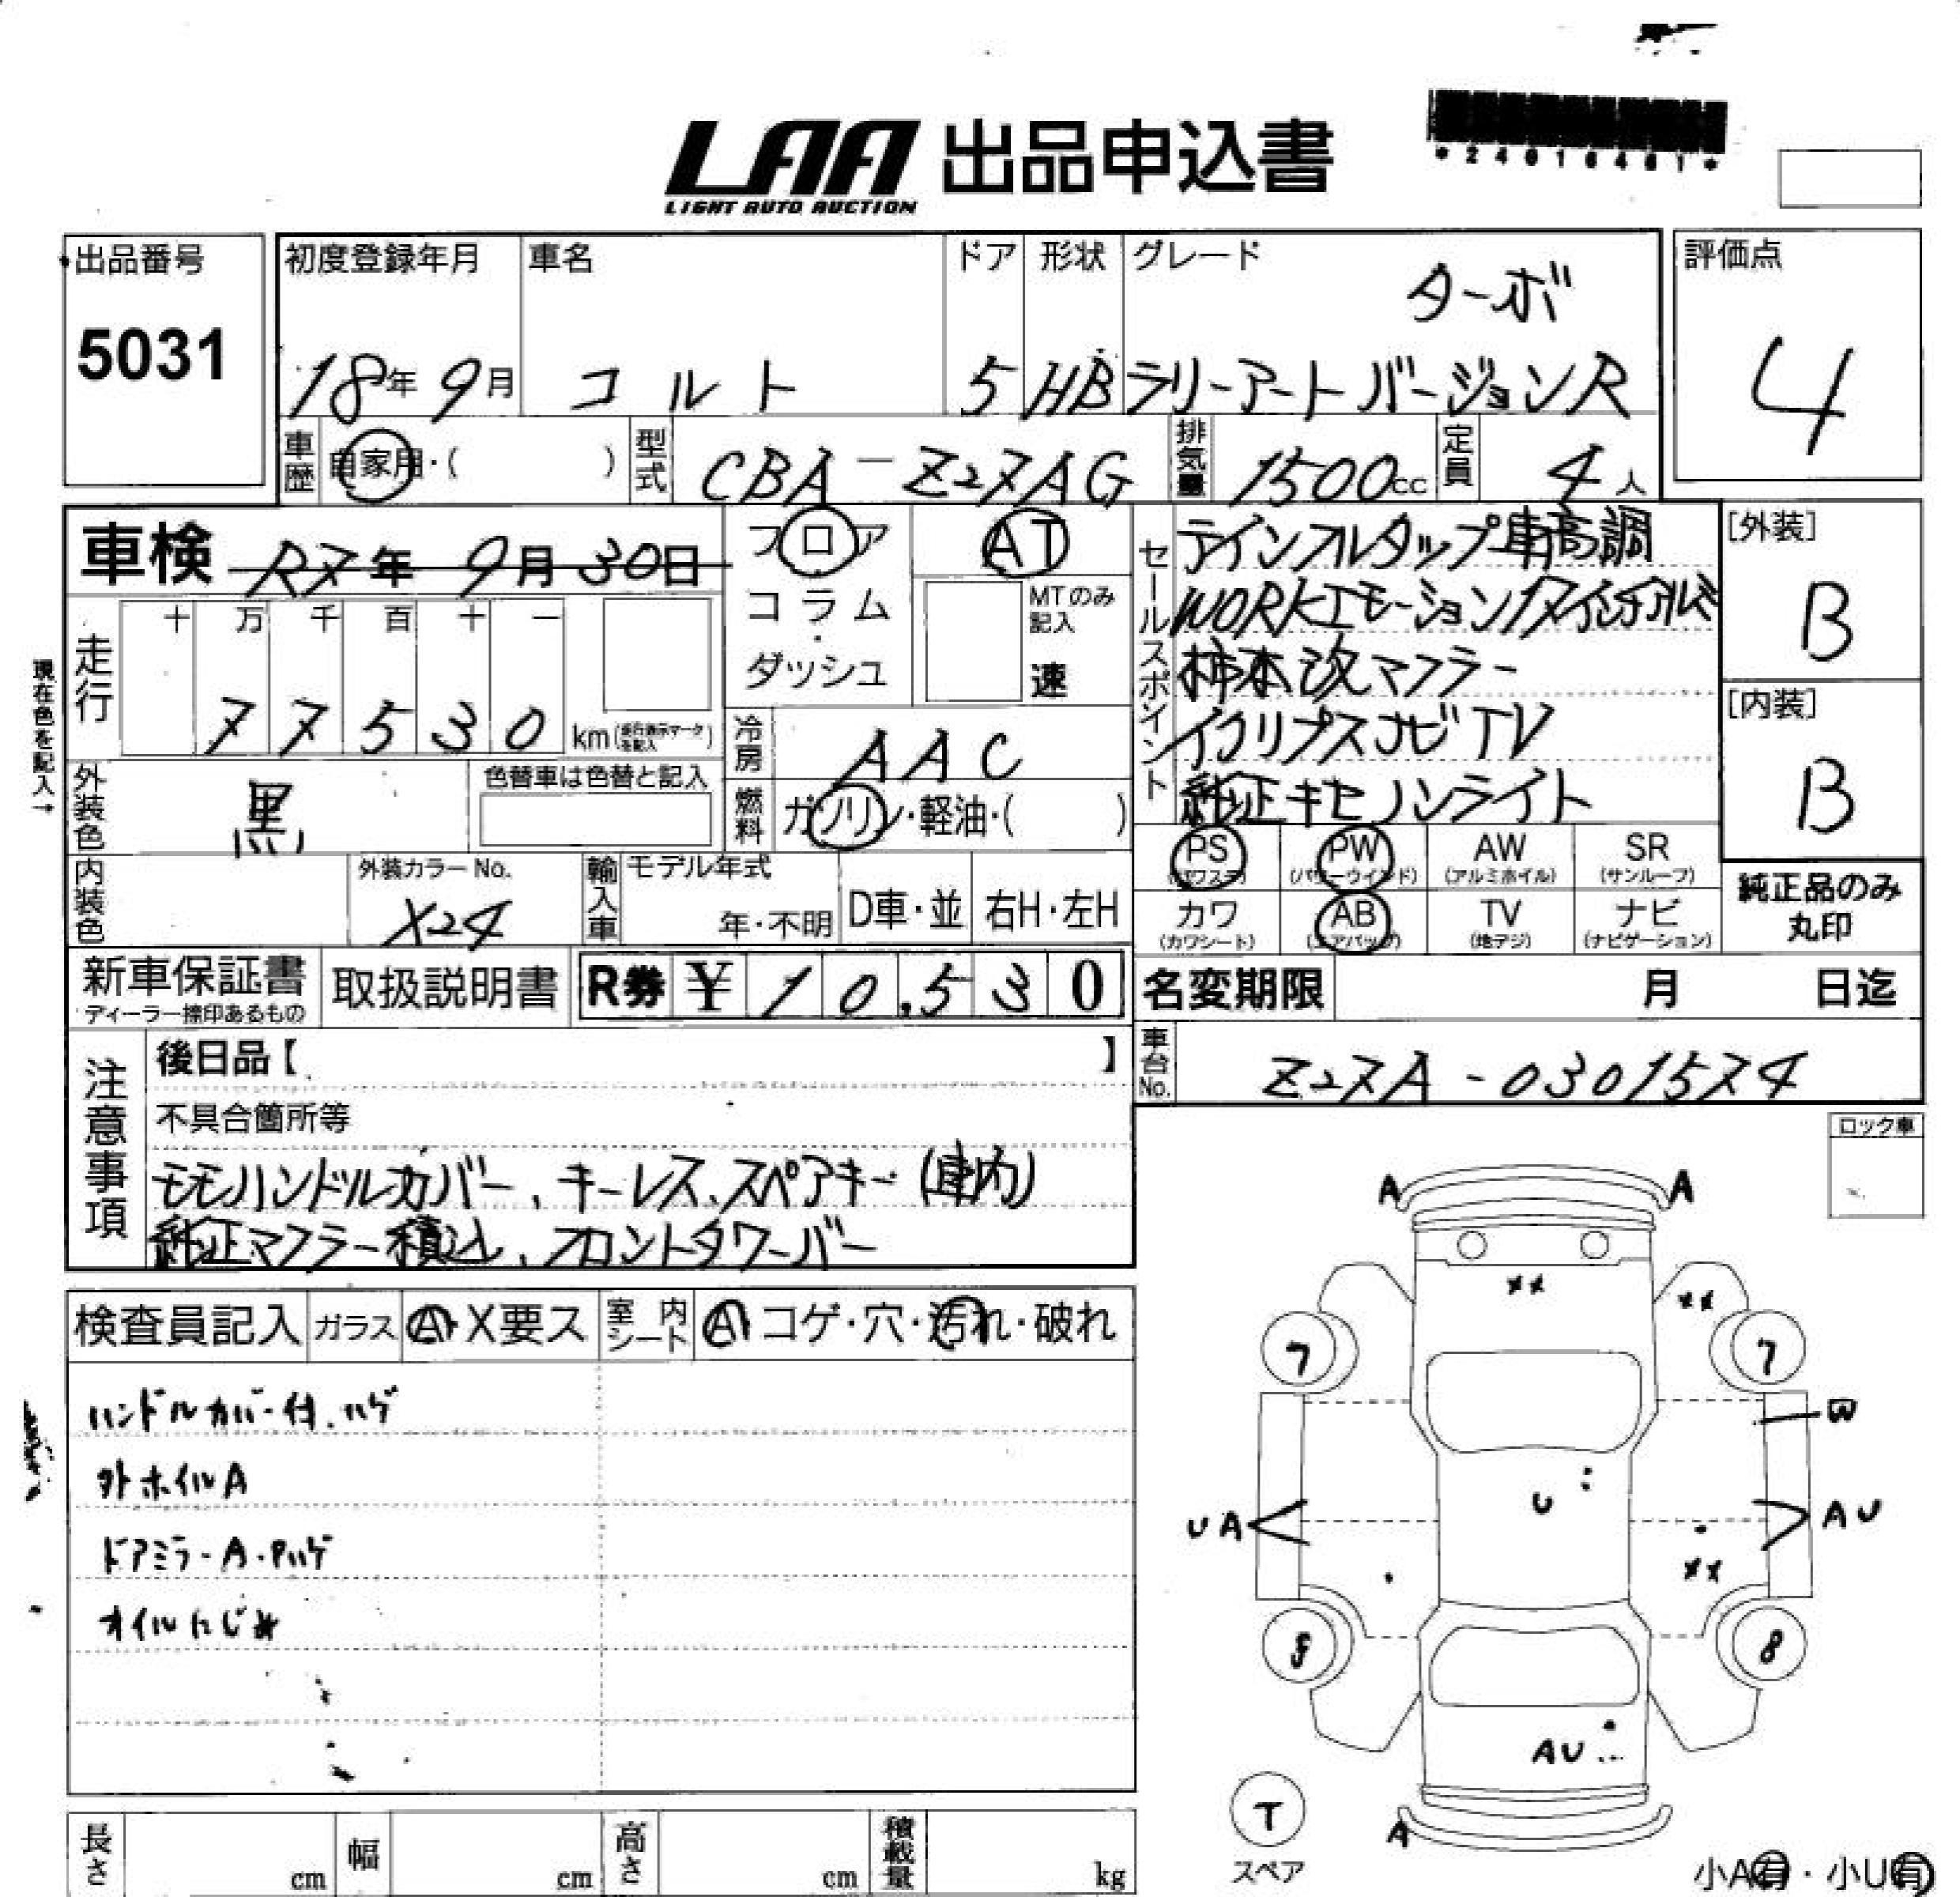 LAA 出品申込書
LIGHT AUTO AUCTION
*24016401*
出品番号
5031
初度登録年月
18年 9月
車名
コルト
ドア
5
形状
HB
グレード
ターボ
ラリーアートバージョンR
評価点
4
車歴
自家用・( )
型式
CBA-Z27AG
排気量
1500cc
定員
4人
車検 R7年 9月 30日
フロア
コラム
・
ダッシュ
AT
MTのみ
記入
速
セールスポイント
テインフルタップ車高調
WORKエモーション17インチアルミ
柿本改マフラー
イクリプスナビTV
純正キセノンライト
[外装]
B
[内装]
B
現在色を記入→
走行
十 万 千 百 十 一
7 7 5 3 0 km(走行表示マークを記入)
冷房
AAC
外装色
黒
色替車は色替と記入
燃料
ガソリン・軽油・( )
内装色
外装カラーNo.
X24
輸入車
モデル年式
年・不明
D車・並
右H・左H
PS
(パワステ)
PW
(パワーウインド)
AW
(アルミホイル)
SR
(サンルーフ)
カワ
(カワシート)
AB
(エアバッグ)
TV
(地デジ)
ナビ
(ナビゲーション)
純正品のみ
丸印
新車保証書
ディーラー捺印あるもの
取扱説明書
R券 ¥ 1 0,5 3 0
名変期限
月 日迄
車台No.
Z27A-0301574
注意事項
後日品【 】
不具合箇所等
モモハンドルカバー、キーレス、スペアキー(車内)
純正マフラー積込、フロントタワーバー
ロック車
検査員記入
ガラス
A・X要ス
室内シート
A コゲ・穴・汚れ・破れ
ハンドルカバー付.ハゲ
外ホイルA
ドアミラーA・Pハゲ
オイルにじみ
A
A
XX
XX
7
7
W
U
UA
AU
XX
8
AU
T
スペア
A
小A有・小U有
長さ
cm
幅
cm
高さ
cm
積載量
kg